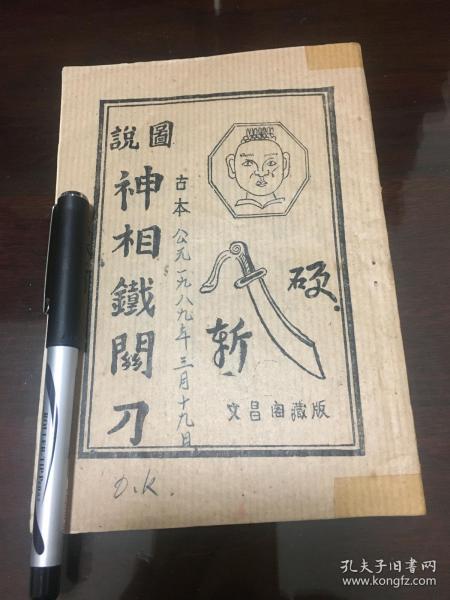 圖說
神相鐵關刀
古本 公元一九八九年三月十九日
硬
斬
文昌阁藏版
O.K.
ROLLER TIP PEN
孔夫子旧书网
www.kongfz.com